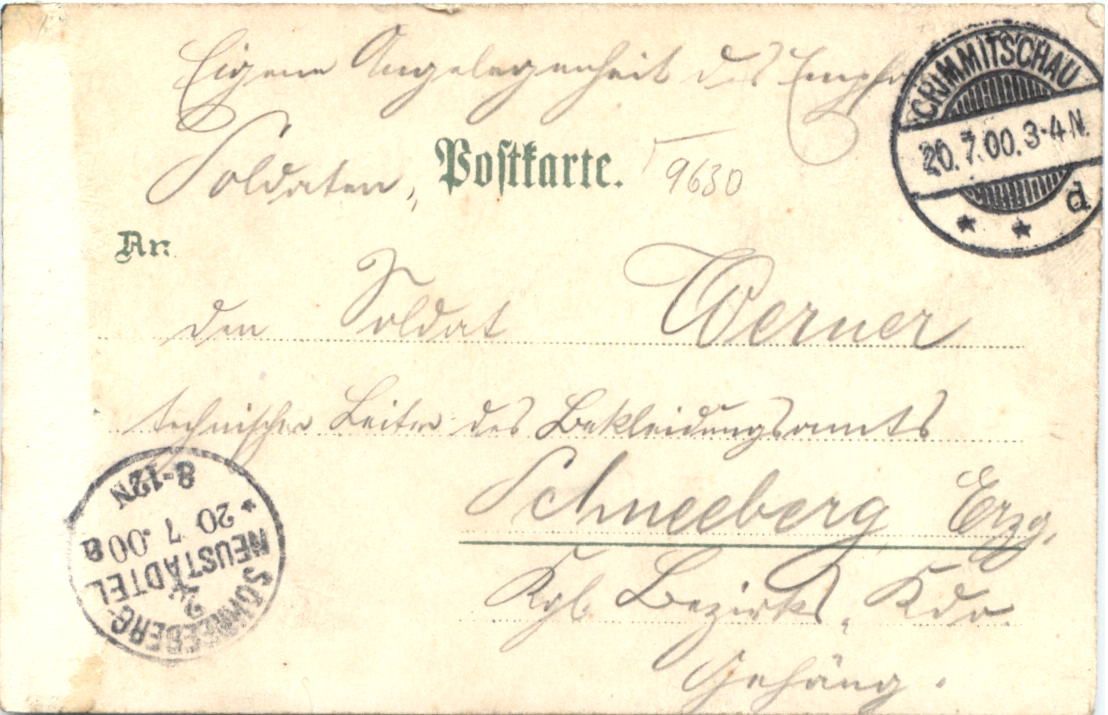 Eigene Angelegenheit des Empfg
Soldaten,
Postkarte.
9630
CRIMMITSCHAU
20.7.00.3-4N.
d
An
den Soldat Werner
technischer Leiter des Bekleidungsamts
Schneeberg Erzg.
Kgl. Bezirks, Kdo.
Gehäng.
SCHNEEBERG-
NEUSTÄDTEL
20 7 .00 a
8-12N